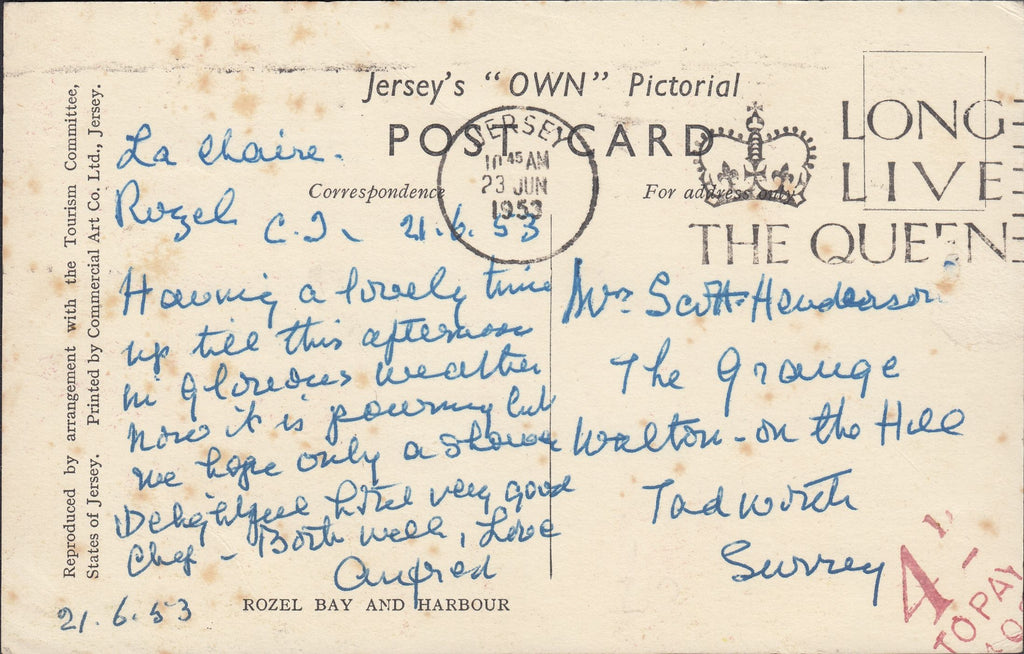 Jersey's "OWN" Pictorial
POST CARD
Correspondence
For address only
JERSEY
10 45 AM
23 JUN
1953
LONG
LIVE
THE QUEEN
Reproduced by arrangement with the Tourism Committee,
States of Jersey. Printed by Commercial Art Co. Ltd., Jersey.
La Chaire.
Rozel
C.I. 21.6.53
Having a lovely time
up till this afternoon
in glorious weather
now it is pouring but
we hope only a shower
Delightful hotel very good
Chef - Both well, Love
21.6.53
ROZEL BAY AND HARBOUR
Mrs Scott-Henderson
The Grange
Walton-on the Hill
Tadworth
Surrey
4
TO PAY